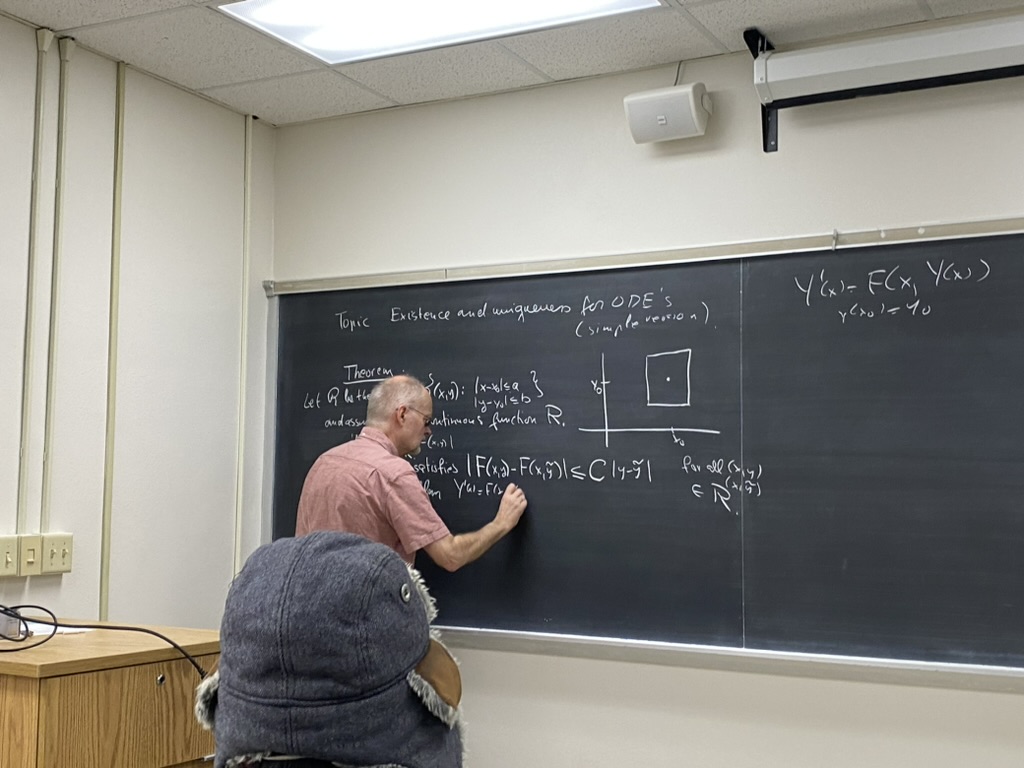 Topic Existence and uniqueness for ODE's
(simple version).
Theorem
Let R be the (x,y): |x-x₀|≤a }
|y-y₀|≤b
and continuous function R.
(x,y)|
satisfies |F(x,y)-F(x,ỹ)| ≤ C |y-ỹ| for all (x,y)
∈ R (x,ỹ)
Y'(x)=F(x
y₀
x₀
Y'(x)= F(x, Y(x))
Y(x₀)=Y₀